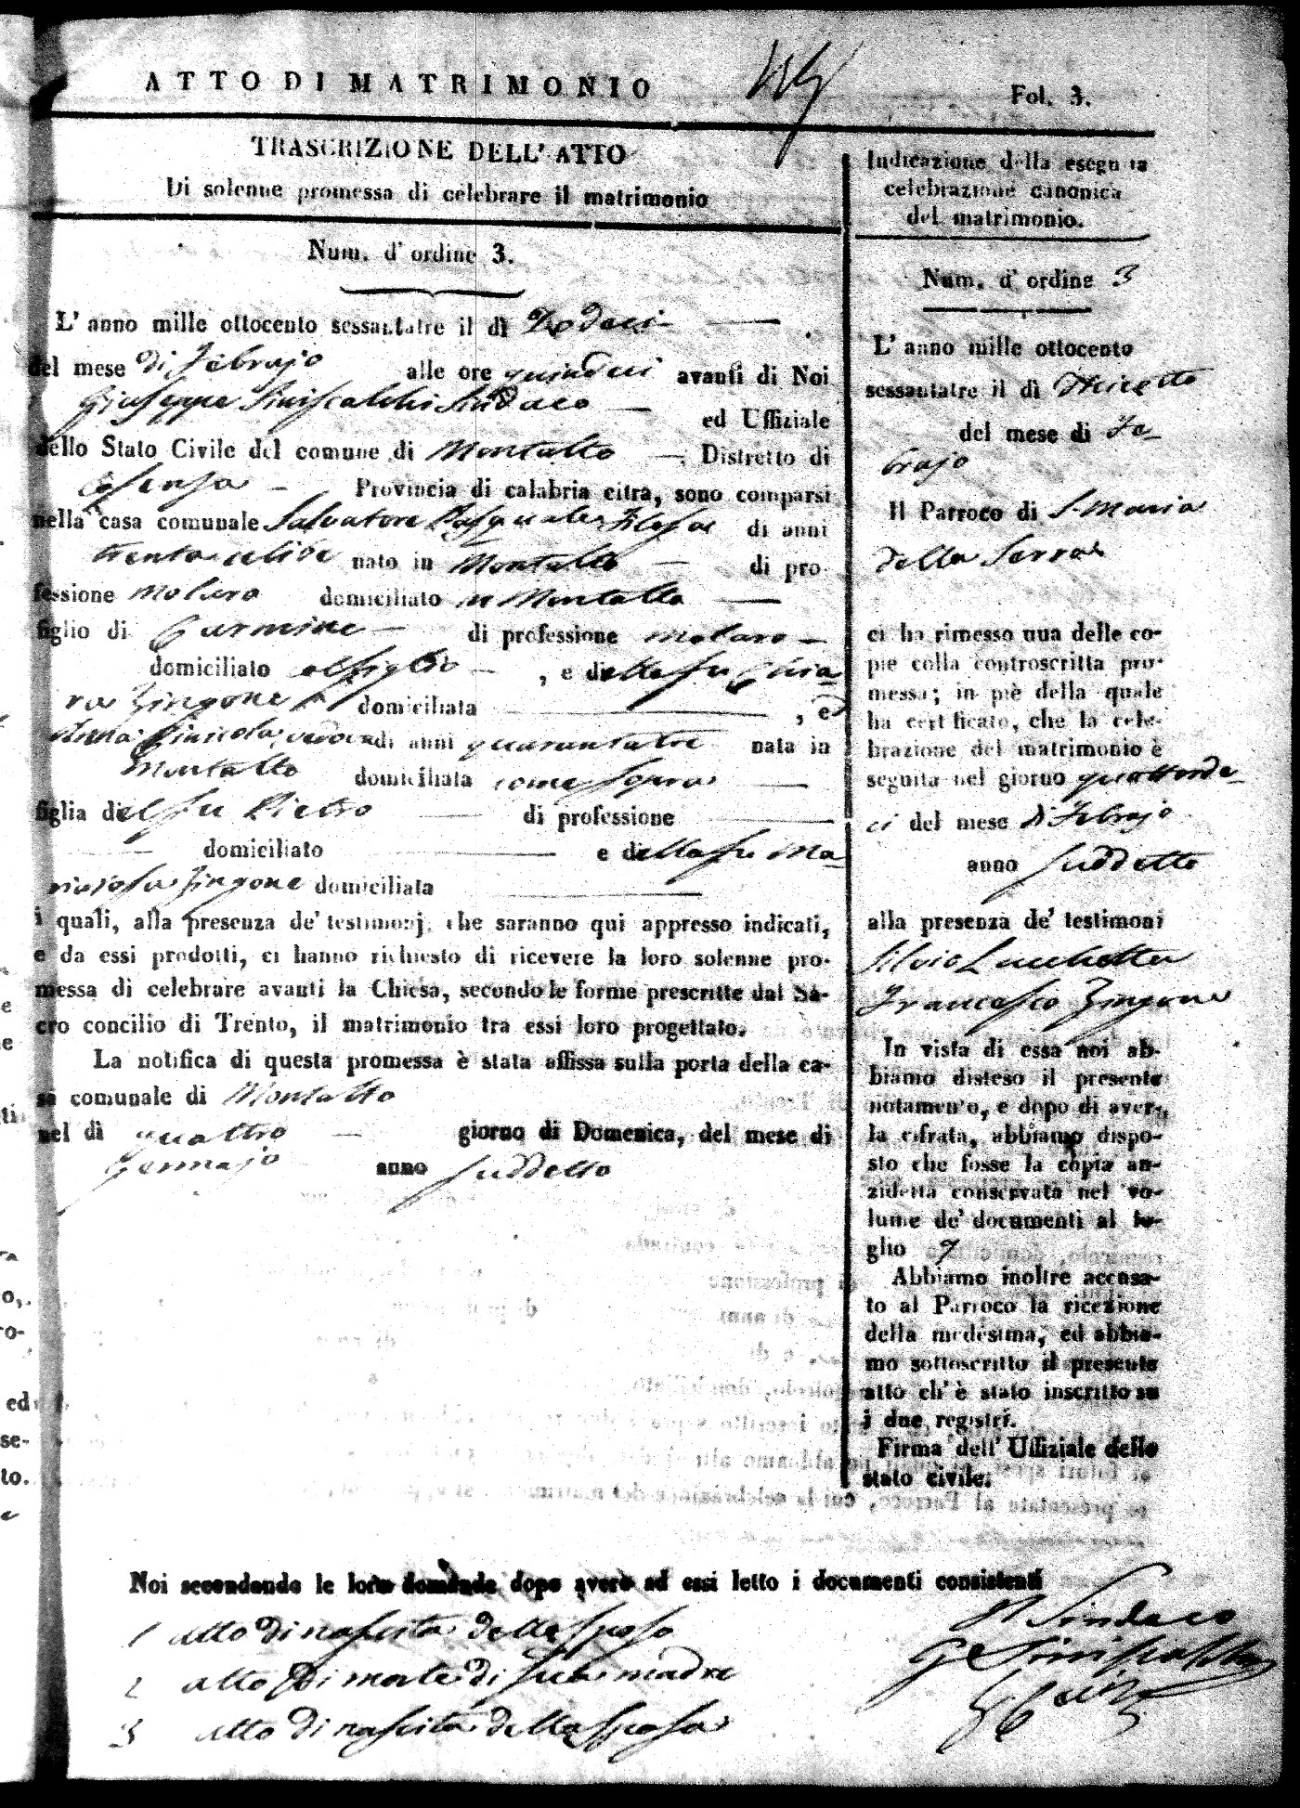 ATTO DI MATRIMONIO
Fol. 3.
TRASCRIZIONE DELL' ATTO
Di solenne promessa di celebrare il matrimonio
Num. d' ordine 3.
L' anno mille ottocento sessantatre il dì Dodeci
del mese di Febrajo alle ore quindeci avanti di Noi
Giuseppe Siniscalchi Sindaco ed Uffiziale
dello Stato Civile del comune di Montalto Distretto di
Cosenza Provincia di calabria citra, sono comparsi
nella casa comunale Salvatore Pasquale di anni
trenta celibe nato in Montalto di pro
fessione molaro domiciliato in Montalto
figlio di Carmine di professione molaro
domiciliato col figlio , e della fu Chia
ra Zingone domiciliata , ed
Anna vedova di anni quarantatre nata in
Montalto domiciliata come sopra
figlia del fu Pietro di professione
domiciliato e della fu Ma
riarosa Zingone domiciliata
i quali, alla presenza de' testimonj che saranno qui appresso indicati,
e da essi prodotti, ci hanno richiesto di ricevere la loro solenne pro-
messa di celebrare avanti la Chiesa, secondo le forme prescritte dal Sa-
cro concilio di Trento, il matrimonio tra essi loro progettato.
La notifica di questa promessa è stata affissa sulla porta della ca-
sa comunale di Montalto
nel dì quattro giorno di Domenica, del mese di
Gennajo anno suddetto
Indicazione della eseguita
celebrazione canonica
del matrimonio.
Num. d' ordine 3
L' anno mille ottocento
sessantatre il dì Diciotto
del mese di Fe
brajo
Il Parroco di S. Maria
della Serra
ci ha rimesso una delle co-
pie colla controscritta pro-
messa; in piè della quale
ha certificato, che la cele-
brazione del matrimonio è
seguita nel giorno quattorde
ci del mese di Febrajo
anno suddetto
alla presenza de' testimoni
Silvio Lucchetta
Francesco Zingone
In vista di essa noi ab-
biamo disteso il presente
notamento, e dopo di aver-
la cifrata, abbiamo dispo-
sto che fosse la copia an-
zidetta conservata nel vo-
lume de' documenti al fo-
glio 7
Abbiamo inoltre accusa-
to al Parroco la ricezione
della medesima, ed abbia-
mo sottoscritto il presente
atto ch' è stato inscritto su
i due registri.
Firma dell' Uffiziale dello
stato civile.
Noi secondando le loro domande dopo avere ad essi letto i documenti consistenti
1 Atto di nascita dello sposo
2 Atto di morte di sua madre
3 Atto di nascita della sposa
Il Sindaco
G Siniscalchi